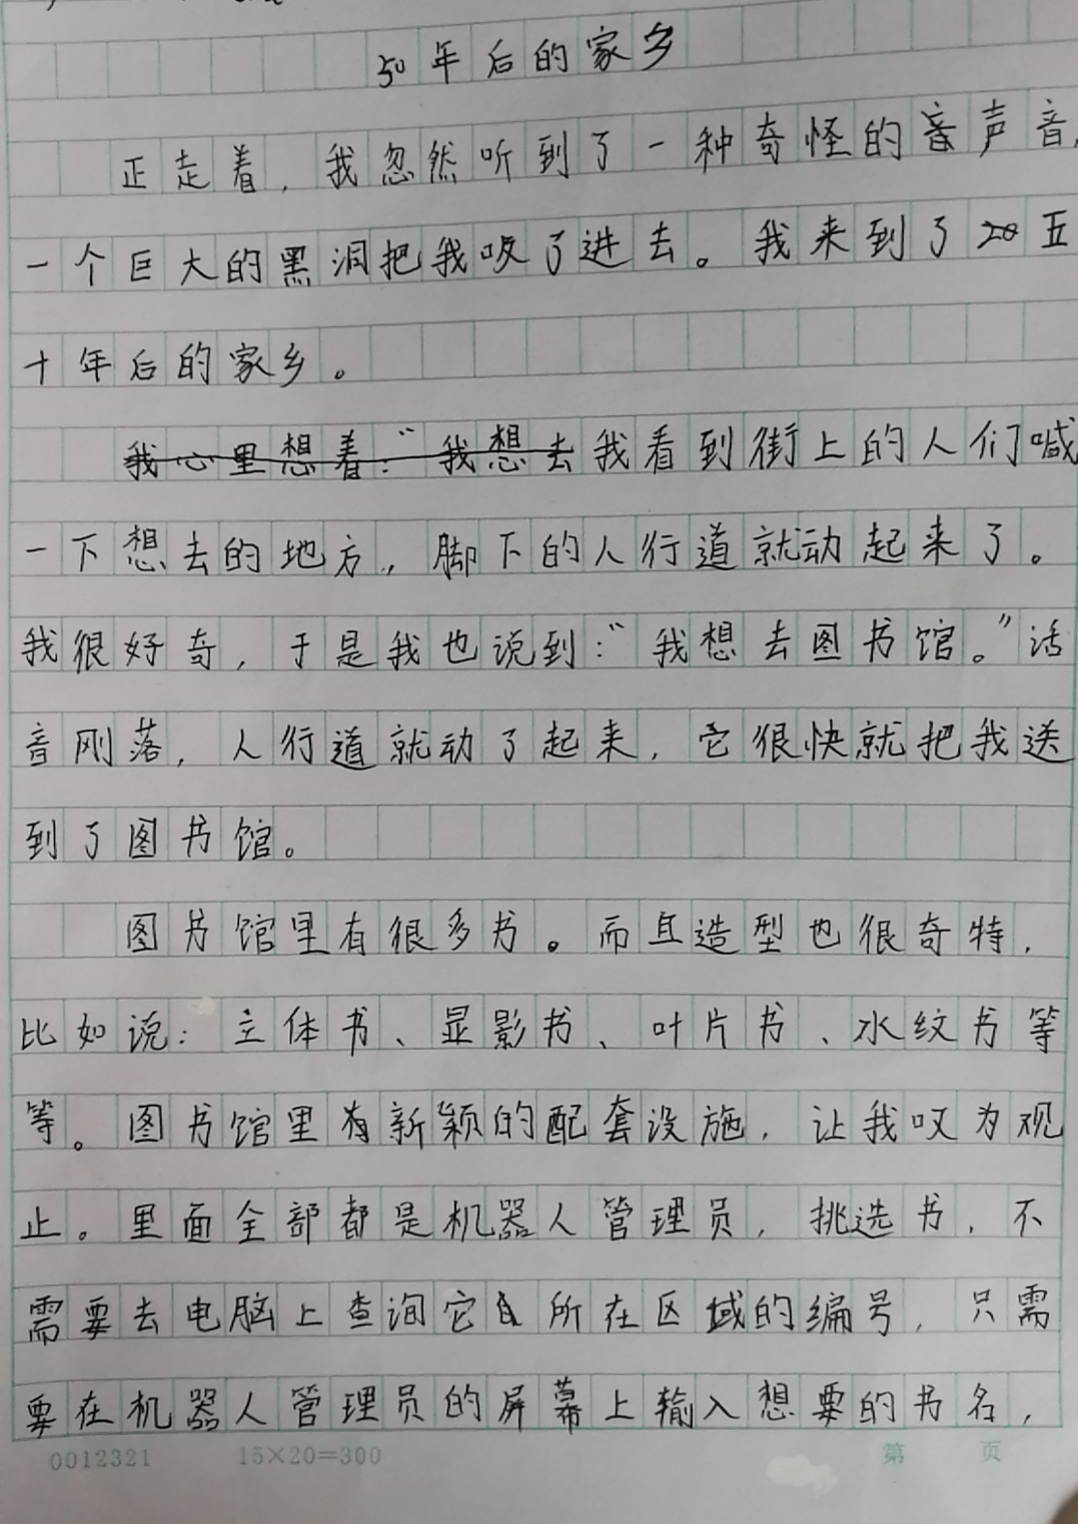 50年后的家乡
正走着，我忽然听到了一种奇怪的声音，
一个巨大的黑洞把我吸了进去。我来到了五
十年后的家乡。
我心里想着：“我想去我看到街上的人们喊
一下想去的地方，脚下的人行道就动起来了。
我很好奇，于是我也说到：“我想去图书馆。”话
音刚落，人行道就动了起来，它很快就把我送
到了图书馆。
图书馆里有很多书。而且造型也很奇特，
比如说：立体书、显影书、叶片书、水纹书等
等。图书馆里有新颖的配套设施，让我叹为观
止。里面全部都是机器人管理员，挑选书，不
需要去电脑上查询它所在区域的编号，只需
要在机器人管理员的屏幕上输入想要的书名，
0012321 15×20=300 第 页